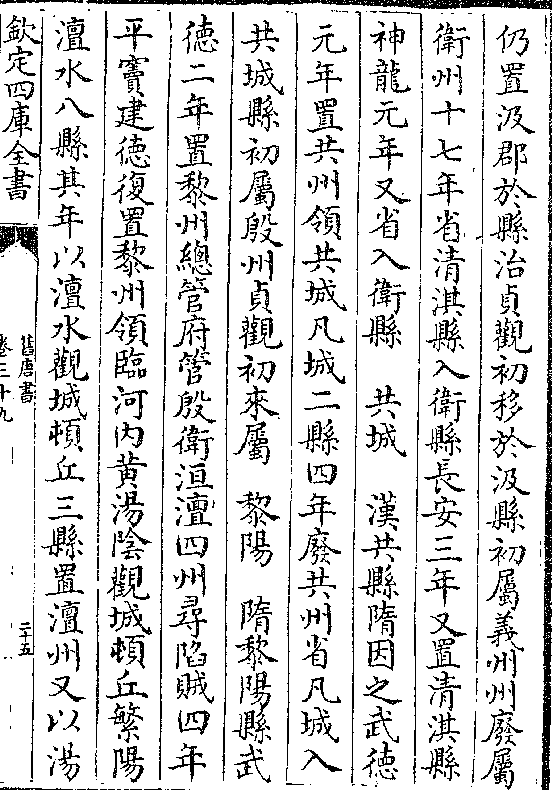 仍置汲郡於縣治貞觀初移於汲縣初屬義州州廢屬
衛州十七年省清淇縣入衛縣長安三年又置清淇縣
神龍元年又省入衛縣　共城　漢共縣隋因之武德
元年置共州領共城凡城二縣四年廢共州省凡城入
共城縣初屬殷州貞觀初來屬　黎陽　隋黎陽縣武
德二年置黎州總管府管殷衛洹澶四州尋陷賊四年
平竇建德復置黎州領臨河內黃湯陰觀城頓丘繁陽
澶水八縣其年以澶水觀城頓丘三縣置澶州又以湯
欽定四庫全書
舊唐書
卷三十九
二十五